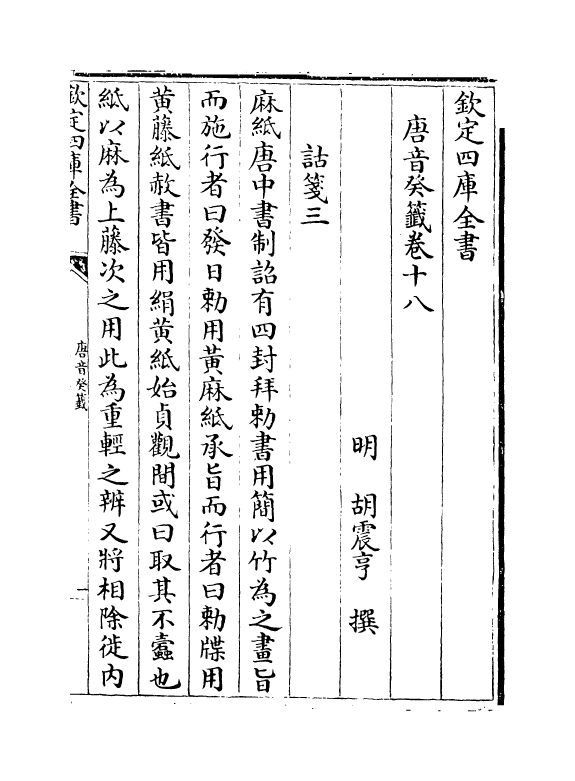 欽定四庫全書
唐音癸籖卷十八
明 胡震亨 撰
詁箋三
麻紙唐中書制詔有四封拜勅書用簡以竹為之畫旨
而施行者曰發日勅用黄麻紙承旨而行者曰勅牒用
黄藤紙赦書皆用絹黄紙始貞觀間或曰取其不蠧也
紙以麻為上藤次之用此為重輕之辨又將相除徙内
欽定四庫全書
唐音癸籖
一